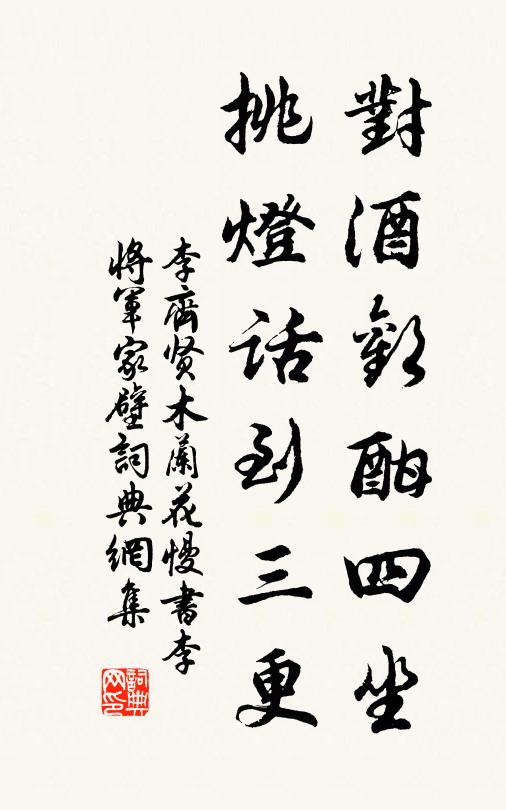 對酒歡酣四坐
挑燈話到三更
李齊贤木蘭花慢書李
將軍家壁詞典網集
詞典网印